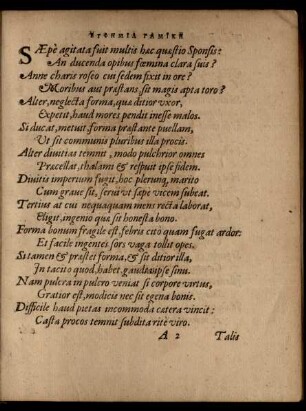 ΥΓΟΝΜΙΑ ΓΑΜΙΚΗ
SÆpè agitata fuit multis hæc quæstio Sponsis:
An ducenda opibus fœmina clara suis?
Anne charis roseo cui sedem fixit in ore?
Moribus aut præstans, sit magis apta toro?
Alter, neglecta forma, qua ditior vxor,
Expetit, haud mores pendit inesse malos.
Si ducat, metuit forma præstante puellam,
Vt sit communis pluribus illa procis.
Alter diuitias temnit, modo pulchrior omnes
Præcellat, thalami & respuit ipse fidem.
Diuitis imperium fugit, hoc plerunq, marito
Cum graue sit, seruiut sæpè vicem subeat.
Tertius at cui nequaquam mens recta laborat,
Eligit, ingenio quæ sit honesta bono.
Forma bonum fragile est, febris citò quam fugat ardor:
Et facile ingentes sors vaga tollit opes.
Si tamen & præstet forma, & sit ditior illa,
In tacito quod, habet, gaudeat ipse sinu.
Nam pulcra in pulcro veniat si corpore virtus,
Gratior est, modicis nec sit egena bonis.
Difficile haud pietas incommoda cætera vincit:
Casta procos temnit subdita ritè viro.
A 2 Talis